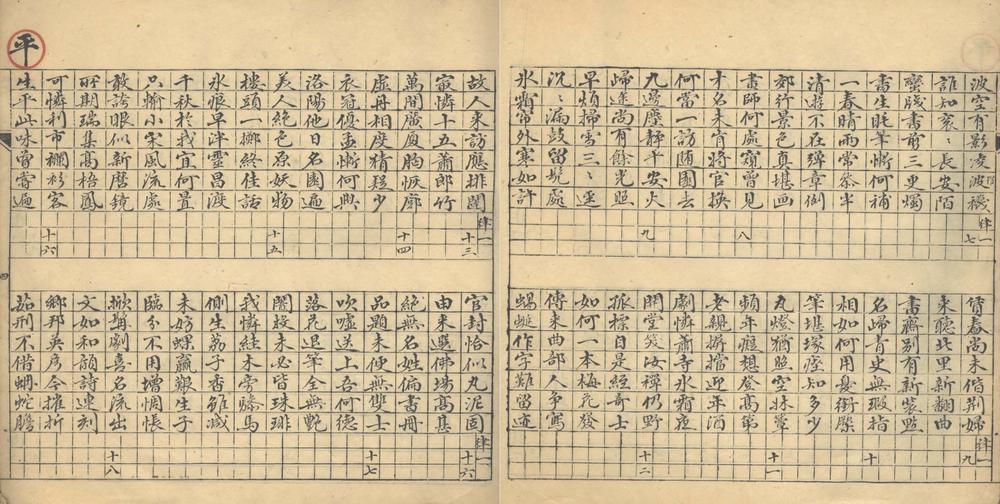 波空有影凌波襪
肆一
七
誰知衮〻長安陌
蠻牋書剪三更燭
書生眊筆慚何補
一春晴雨常參半
清遊不在彈章例
郊行景色真堪画
畫師何處窺曾見
八
十名未肯將官換
何當一訪随園去
九邊塵靜平安火
九
歸途尚有餘光照
早煩掃雪三〻逕
沉〻漏鼓留髡處
氷霜常外寒如許
賃舂尚未偕荆婦
肆一
九
來聽北里新翻曲
畫廳別有新裝點
名歸青史無瑕指
十
相如何用憂銜
筆堪塚瘞知多少
九燈猶照空牀簟
十一
頻年癡想登高第
老親擠擋迎年酒
劇憐蕭寺氷霜夜
開堂海禪仍野
十二
孤標自是經奇士
如何一本梅花發
傳來曲部人爭寫
蝎蜒作字難留迹
平
故人來訪應排闥
肆一
十三
最憐十五蕭郎竹
萬間廣厦胸恢廓
十四
虛舟相度猜疑少
衣冠優孟慚何與
洛陽他日名園遍
美人絕色原妖物
十五
樓頭一擲終佳話
氷恨早泮靈昌渡
千秋於我宜何置
只輸小宋風流處
敢誇眼似新磨鏡
所期瑞集高梧鳳
可憐利市襴衫客
十六
生平此味曾嘗遍
官封恰似丸泥固
肆一
十六
由來選佛場高集
絕無名姓偏書冊
品題未便無雙士
十七
吹噓送上吾何德
落花退筆全無艷
闇投未必皆珠琲
我憐絓木旁驂馬
側生荔子香雖減
未妨螺蠃艱生子
臨分不用增惆悵
掀髯劇喜名流出
十八
文如和韻詩連刻
鄉邦英彦今摧折
茹刑不借蚺蛇膽